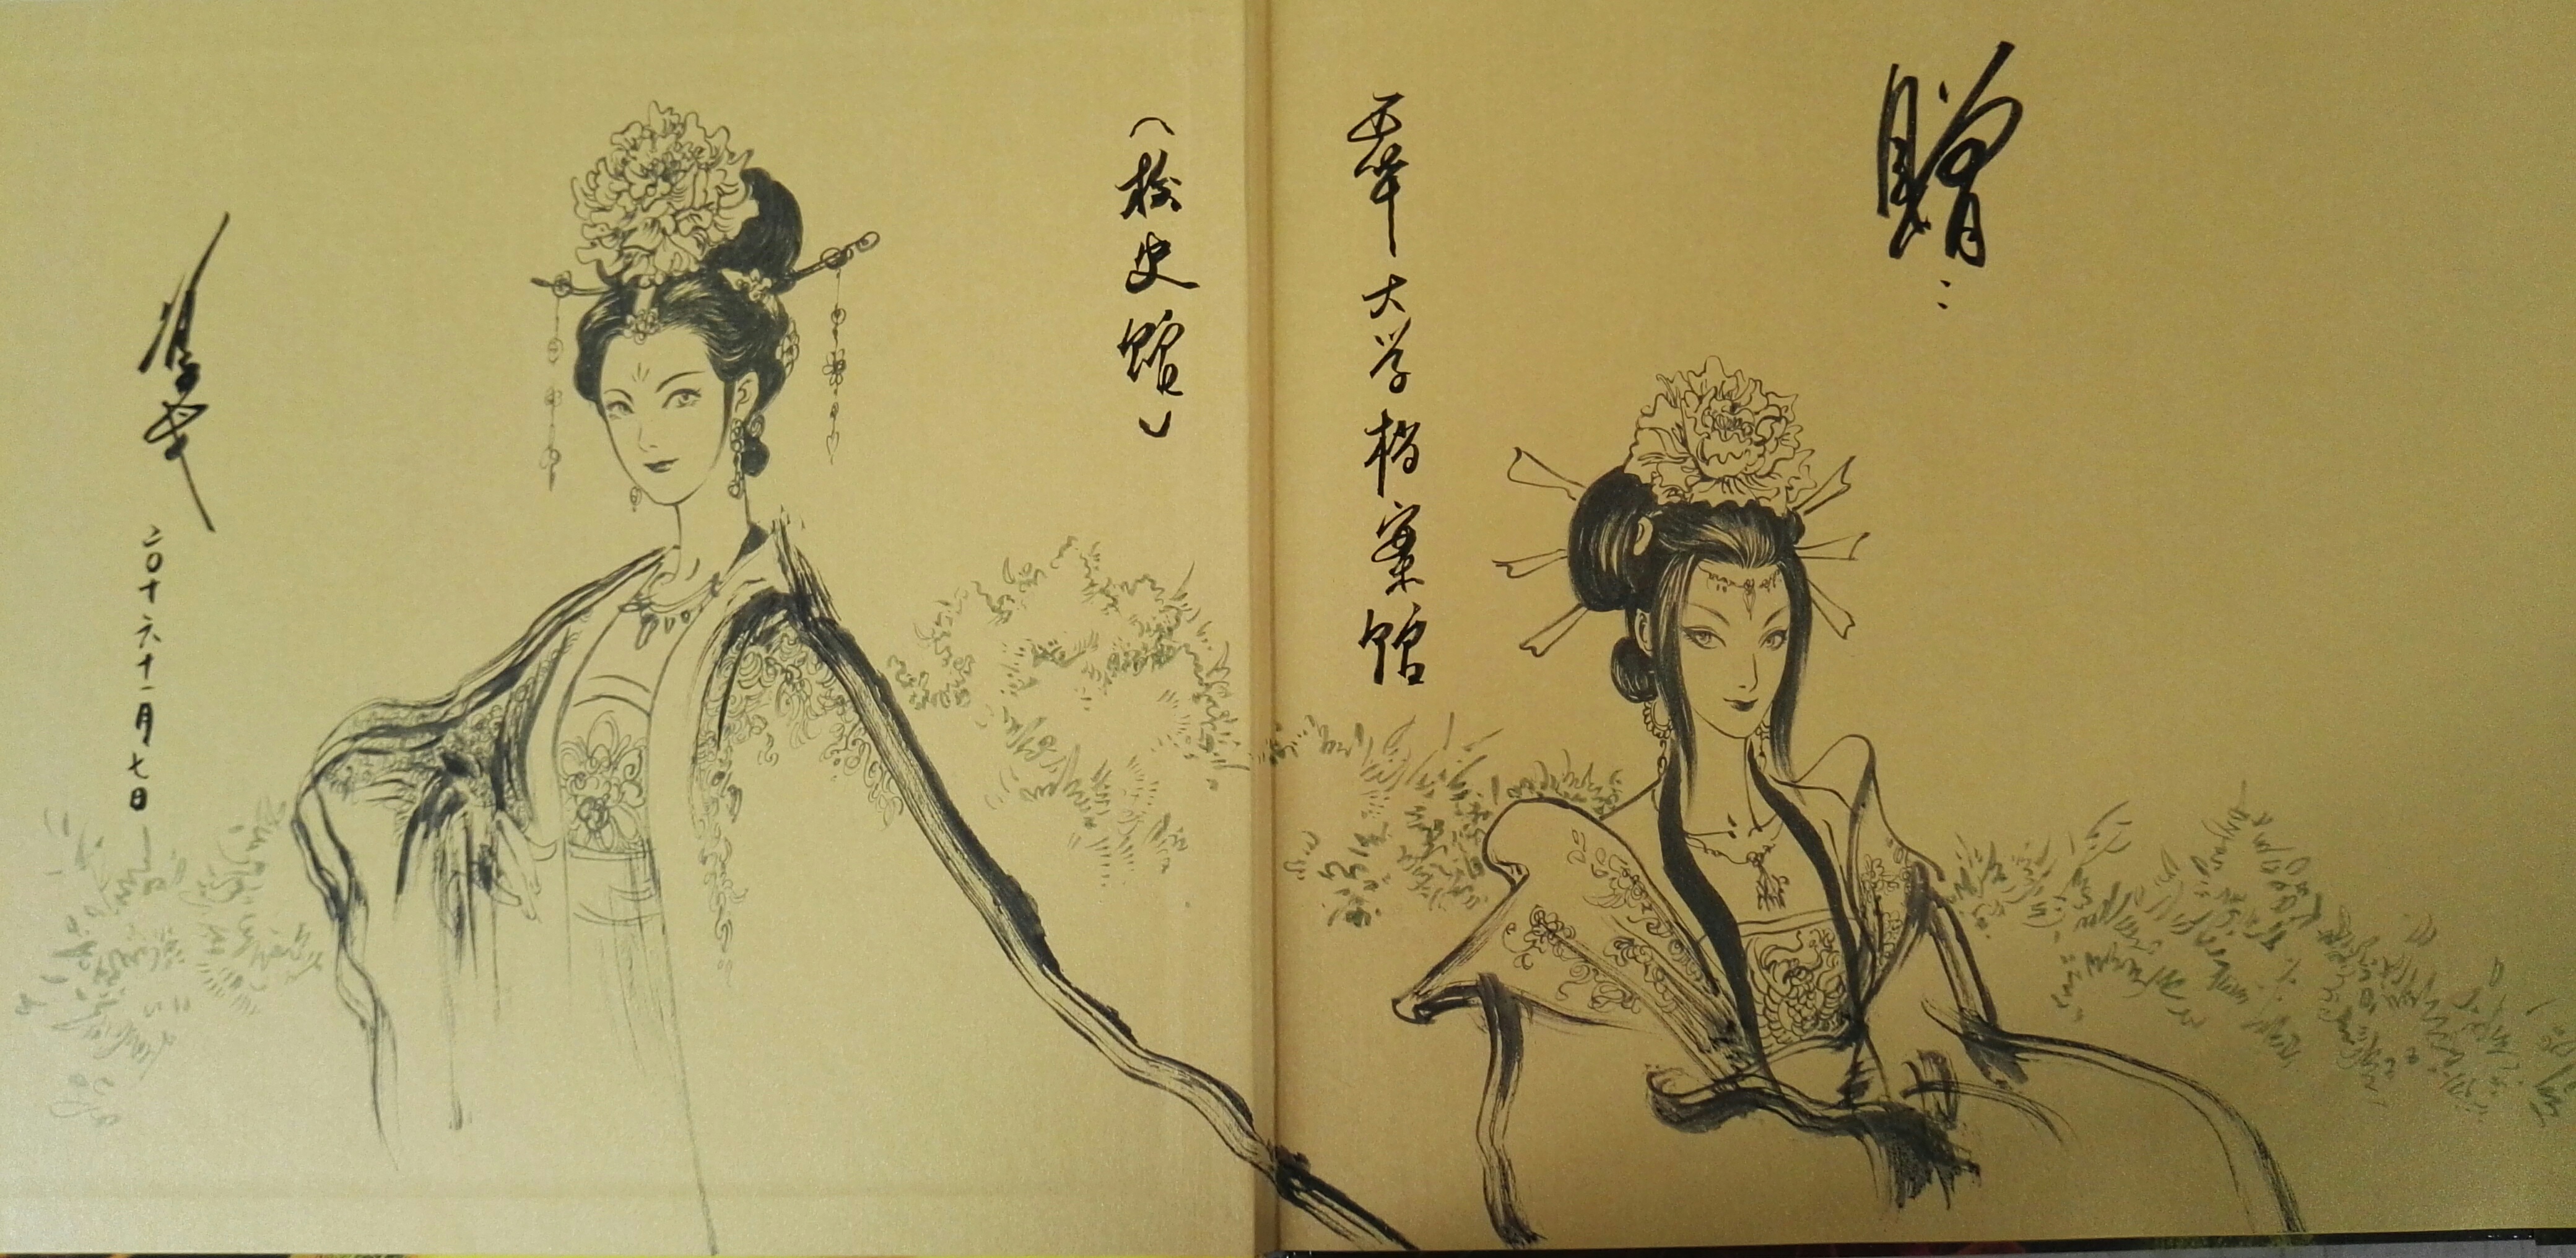 贈：
西華大学档案馆
（校史馆）
二〇十六十一月七日